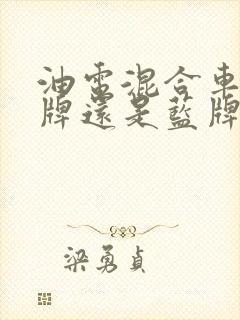 油電混合車
牌還是藍牌
梁勇貞